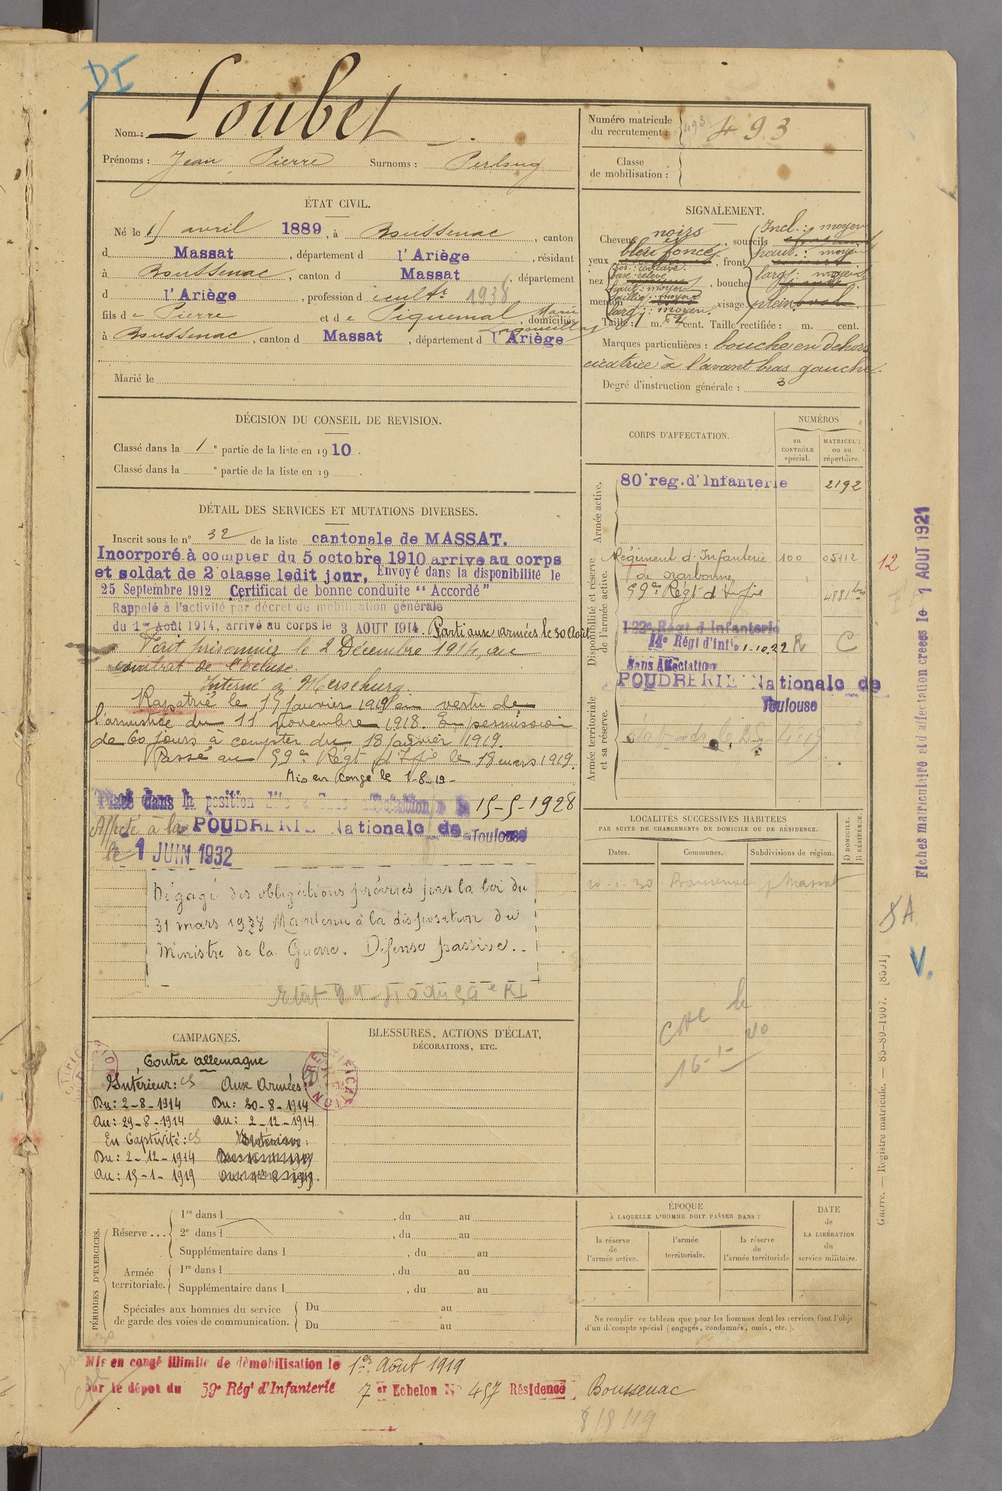 DI
Nom : Loubet
Prénoms : Jean Pierre Surnoms :
Numéro matricule du recrutement : 493 493
Classe de mobilisation :
ÉTAT CIVIL.
Né le avril 1889, à Boussenac, canton
d Massat, département d l'Ariège, résidant
à Boussenac, canton d Massat département
d l'Ariège, profession d cultr 1938
fils de Pierre et de Piquemal Marie, domiciliés
à Boussenac, canton d Massat, département d l'Ariège
Marié le
SIGNALEMENT.
Cheveux noirs, sourcils
yeux bleu foncé, front
Incl. : moyen
haut. : moye
larg. : moyen
nez, bouche
menton, visage
Taille : 1 m. cent. Taille rectifiée : m. cent.
Marques particulières : bouche en dehors
cicatrice à l'avant bras gauche.
Degré d'instruction générale : 3
DÉCISION DU CONSEIL DE REVISION.
Classé dans la 1e partie de la liste en 1910.
Classé dans la e partie de la liste en 19
CORPS D'AFFECTATION.
NUMÉROS
au CONTRÔLE spécial.
MATRICULE ou au répertoire.
Armée active.
80e reg. d'Infanterie 2192
Disponibilité et réserve de l'armée active.
Régiment d'Infanterie 100 05112
de Narbonne
59e Régt d'Infie
122e Régt d'Infanterie
14e Régt d'Infie 1.10.22 R C
Sans Affectation
Armée territoriale et sa réserve.
POUDRERIE Nationale de
Toulouse
DÉTAIL DES SERVICES ET MUTATIONS DIVERSES.
Inscrit sous le n° 32 de la liste cantonale de MASSAT.
Incorporé à compter du 5 octobre 1910 arrive au corps
et soldat de 2e classe ledit jour. Envoyé dans la disponibilité le
25 Septembre 1912 Certificat de bonne conduite "Accordé"
Rappelé à l'activité par décret de mobilisation générale
du 1er Août 1914, arrivé au corps le 3 AOUT 1914. Parti aux armées le 30 Août
Fait prisonnier le 2 Décembre 1914, au
combat de l'Ecluse.
Interné à Merseburg.
Rapatrié le 15 janvier 1919 en vertu de
l'armistice du 11 Novembre 1918. En permission
de 60 jours à compter du 18 janvier 1919.
Passé au 59e Régt d'Infie le 18 mars 1919.
Mis en Congé le 1-8-19-
Placé dans la position dite « Sans affectation » le 15-5-1928
Affecté à la POUDRERIE Nationale de Toulouse
le 1 JUIN 1932
Dégagé des obligations prévues par la loi du
31 mars 1928 Maintenu à la disposition du
Ministre de la Guerre. Défense passive.
LOCALITÉS SUCCESSIVES HABITÉES
PAR SUITE DE CHANGEMENTS DE DOMICILE OU DE RÉSIDENCE.
Dates. Communes. Subdivisions de région. D DOMICILE. R RÉSIDENCE.
20-1-30 Boussenac p. Massat
CAMPAGNES.
Contre allemagne
Intérieur : CS Aux Armées :
Du : 2-8-1914 Du : 30-8-1914
Au : 29-8-1914 au : 2-12-1914
En Captivité : CS Intérieur :
Du : 2-12-1914
Au : 15-1-1919
BLESSURES, ACTIONS D'ÉCLAT,
DÉCORATIONS, ETC.
PÉRIODES D'EXERCICES.
Réserve . . .
1re dans l , du au
2e dans l , du au
Supplémentaire dans l , du au
Armée territoriale.
1re dans l , du au
Supplémentaire dans l , du au
Spéciales aux hommes du service de garde des voies de communication.
Du au
Du au
ÉPOQUE
À LAQUELLE L'HOMME DOIT PASSER DANS :
la réserve de l'armée active.
l'armée territoriale.
la réserve de l'armée territoriale
DATE de LA LIBÉRATION du service militaire.
Ne remplir ce tableau que pour les hommes dont les services font l'objet
d'un décompte spécial (engagés, condamnés, omis, etc.).
Mis en congé illimité de démobilisation le 1er Août 1919
par le dépôt du 59e Régt d'Infanterie 7e Echelon N° 457 Résidence Boussenac
8/8/19
12
Fiches matriculaire et d'affectation créées le 1 AOUT 1921
SA
V.
Guerre. — Registre matricule.